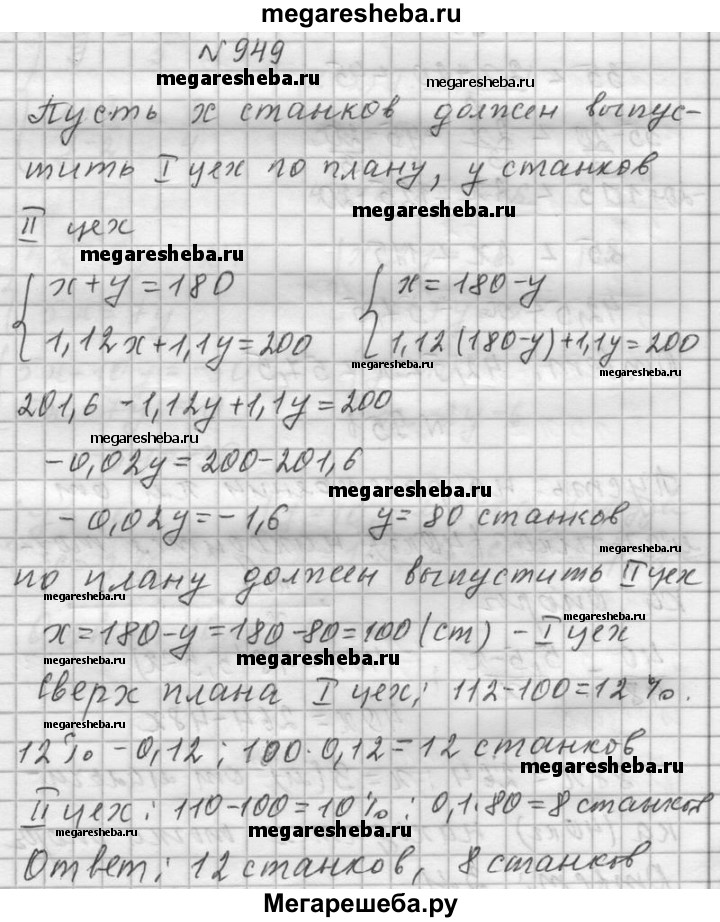 megaresheba.ru
N 949
megaresheba.ru
megaresheba.ru
Пусть x станков должен выпус-
тить I цех по плану, y станков
megaresheba.ru
II цех
megaresheba.ru
x+y=180 x=180-y
1,12x+1,1y=200 1,12(180-y)+1,1y=200
megaresheba.ru
megaresheba.ru
201,6-1,12y+1,1y=200
megaresheba.ru
-0,02y=200-201,6
megaresheba.ru
-0,02y=-1,6 y=80 станков
megaresheba.ru
по плану должен выпустить II цех
megaresheba.ru
x=180-y=180-80=100(ст) - I цех
megaresheba.ru
megaresheba.ru
Сверх плана I цех: 112-100=12%.
megaresheba.ru
12% - 0,12; 100·0,12=12 станков
megaresheba.ru
II цех: 110-100=10%; 0,1·80=8 станков
megaresheba.ru
megaresheba.ru
megaresheba.ru
Ответ: 12 станков, 8 станков
Мегарешеба.ру